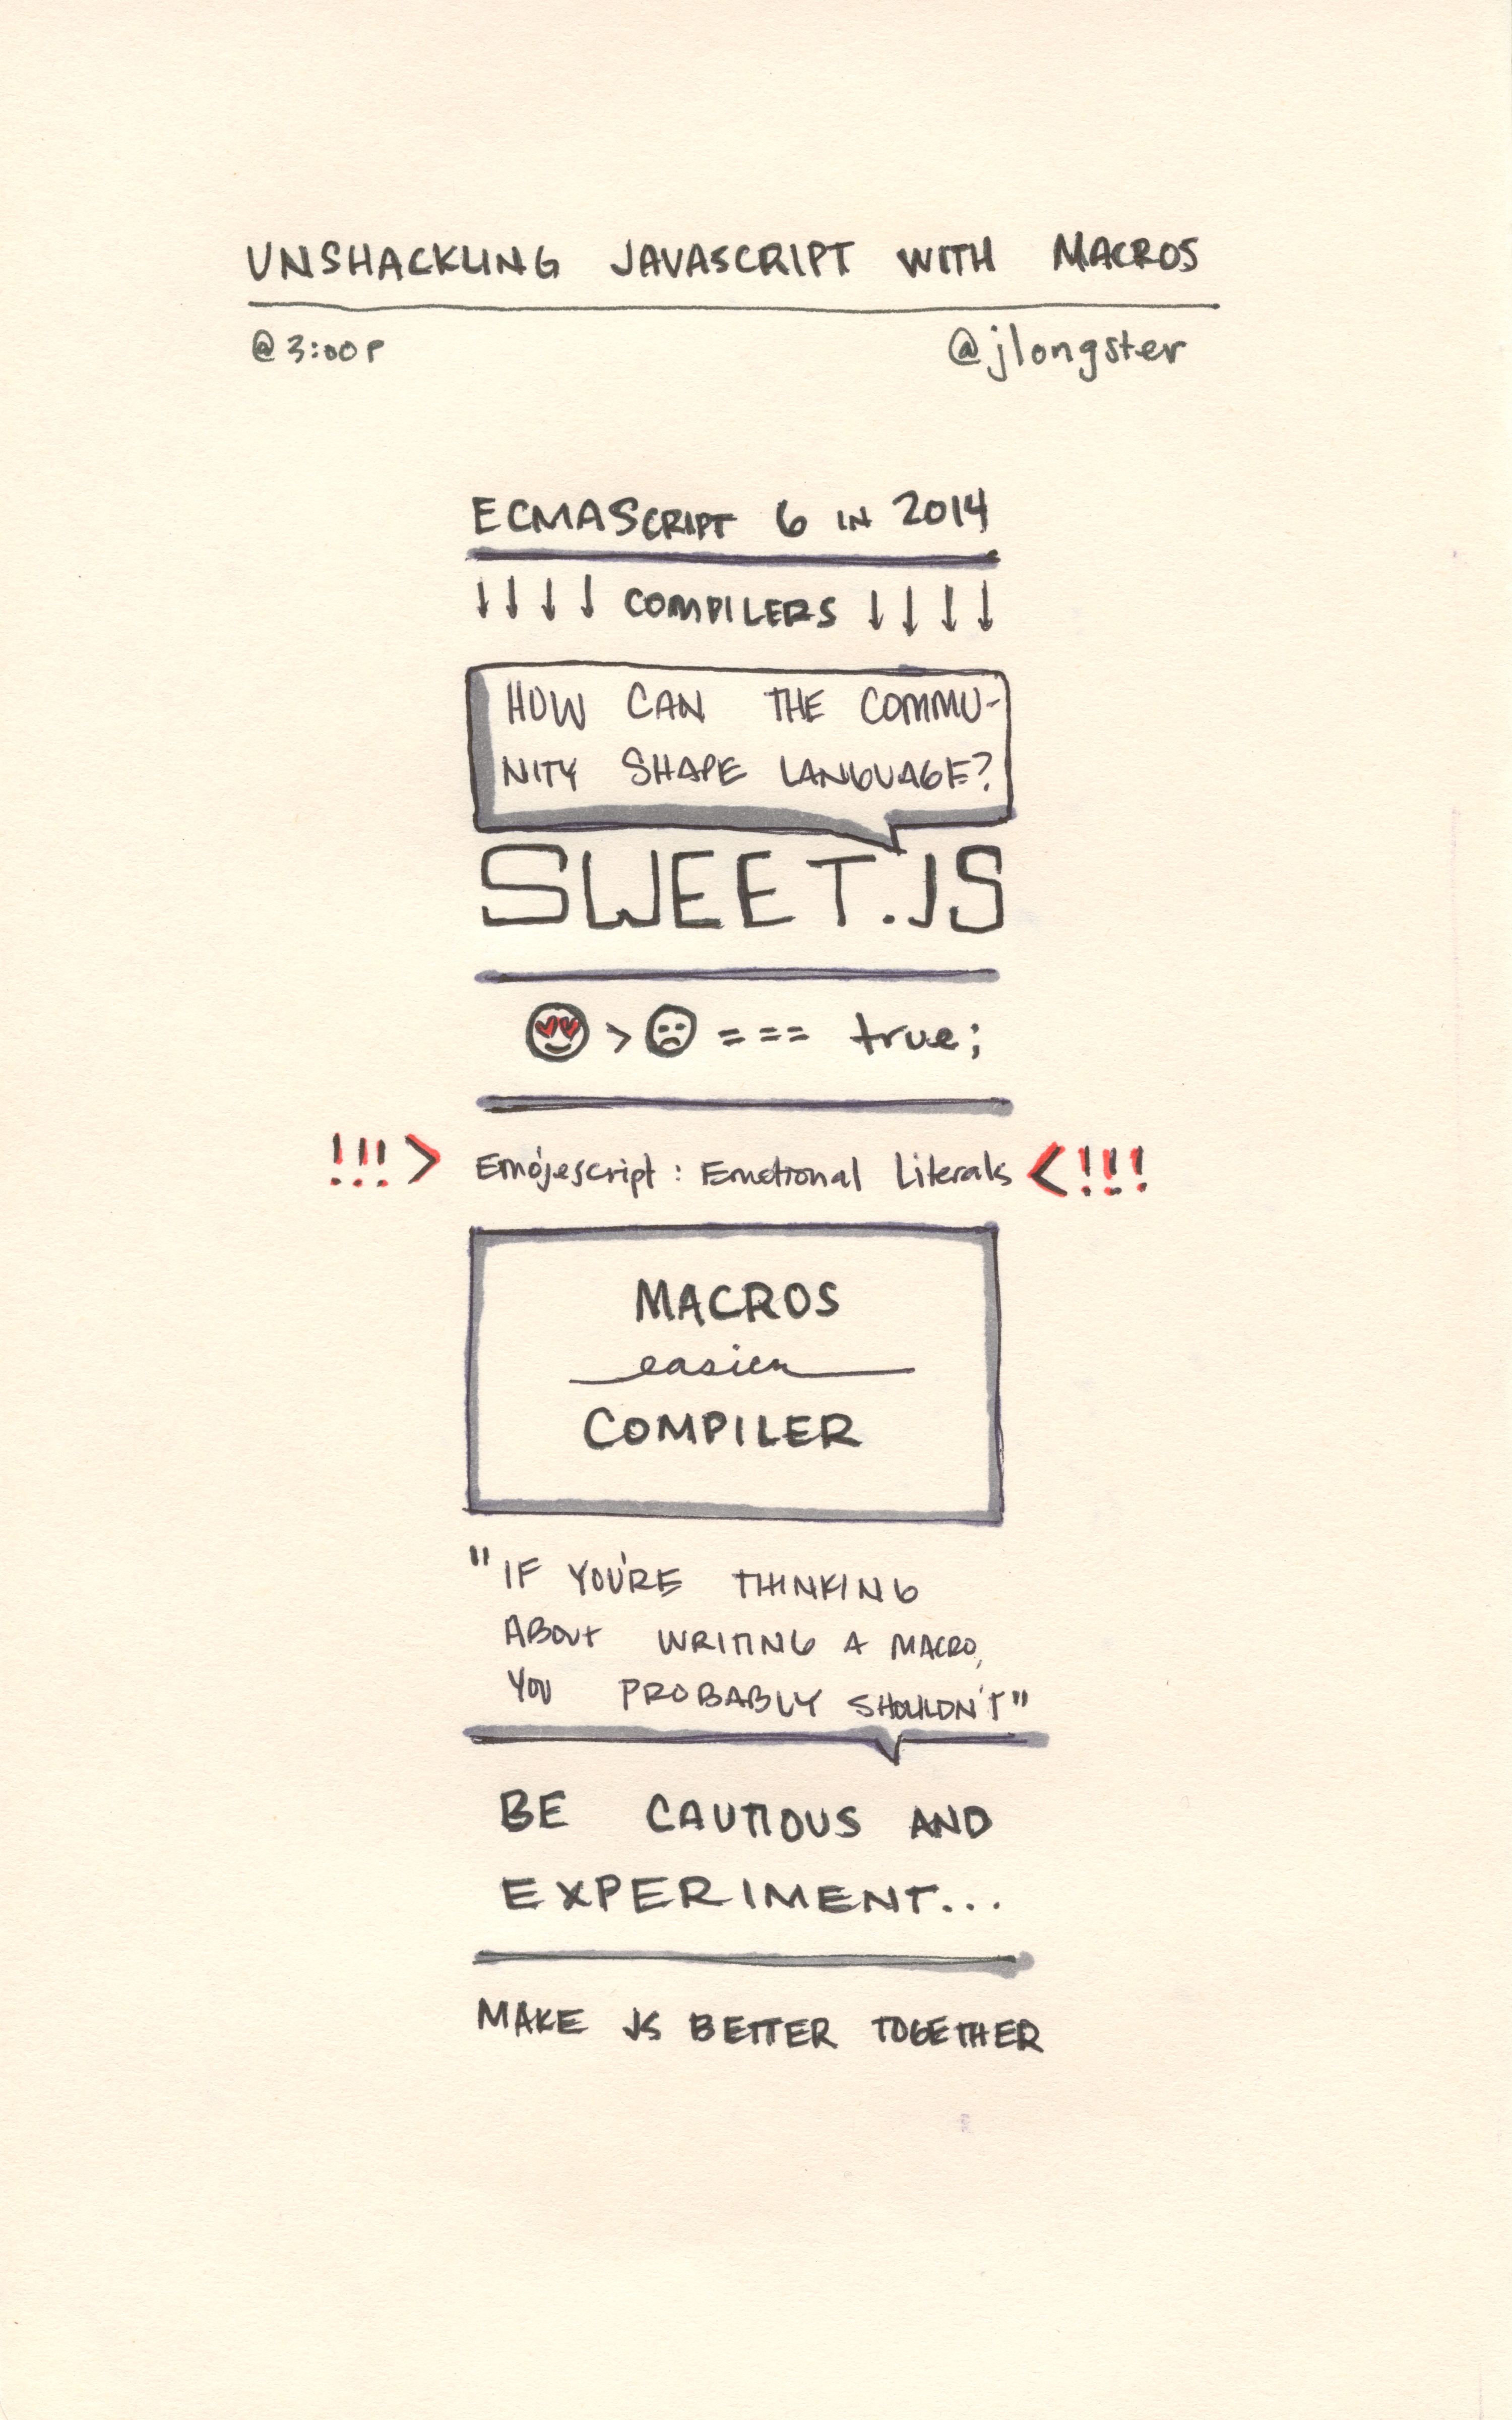 UNSHACKLING JAVASCRIPT WITH MACROS
@3:00P @jlongster
ECMASCRIPT 6 IN 2014
↓↓↓↓ COMPILERS ↓↓↓↓
HOW CAN THE COMMU-
NITY SHAPE LANGUAGE?
SWEET.JS
😍 > ☹ === true;
!!!> Emojescript: Emotional Literals <!!!
MACROS
easier
COMPILER
"IF YOU'RE THINKING
ABOUT WRITING A MACRO,
YOU PROBABLY SHOULDN'T"
BE CAUTIOUS AND
EXPERIMENT...
MAKE JS BETTER TOGETHER